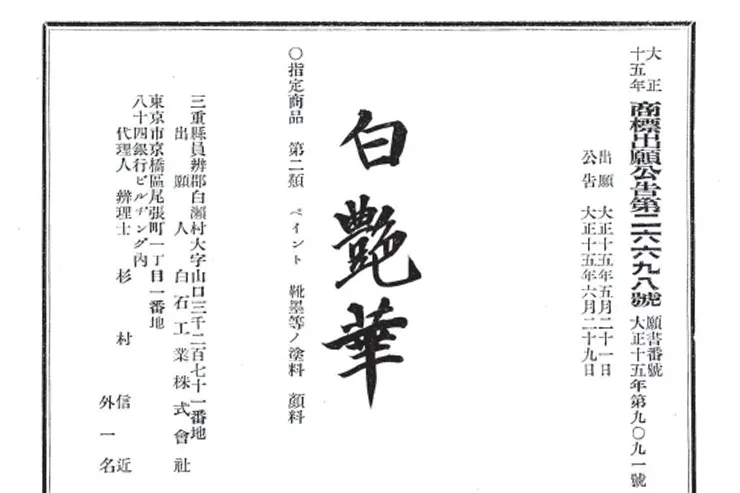 大正十五年 商標出願公告第二六六九八號 願書番號 大正十五年第九〇九一號
出願 大正十五年五月二十一日
公告 大正十五年六月二十九日
白艷華
〇指定商品 第二類 ペイント 靴墨等ノ塗料 顔料
三重縣員辨郡白瀨村大字山口三千二百七十一番地
出願人 白石工業株式會社
東京市京橋區尾張町一丁目一番地
八十四銀行ビルヂング內
代理人 辨理士 杉村信近
外一名